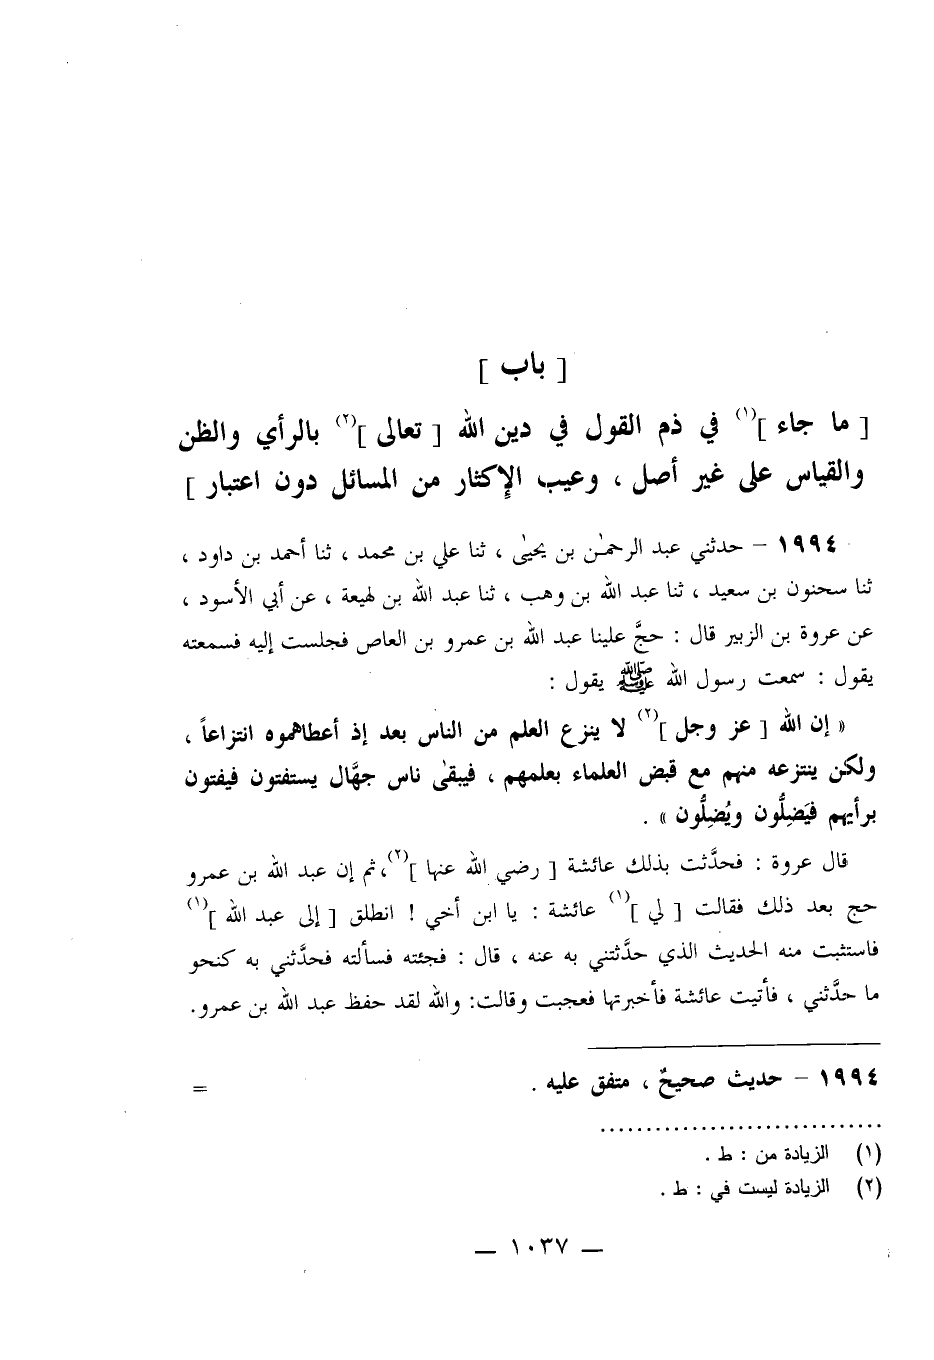 [ باب ]
[ ما جاء ](١) في ذم القول في دين الله [ تعالى ](٢) بالرأي والظن
والقياس على غير أصل ، وعيب الإكثار من المسائل دون اعتبار ]
١٩٩٤ – حدثني عبد الرحمٰن بن يحيىٰ ، ثنا علي بن محمد ، ثنا أحمد بن داود ،
ثنا سحنون بن سعيد ، ثنا عبد الله بن وهب ، ثنا عبد الله بن لهيعة ، عن أبي الأسود ،
عن عروة بن الزبير قال : حجَّ علينا عبد الله بن عمرو بن العاص فجلست إليه فسمعته
يقول : سمعت رسول الله ﷺ يقول :
« إن الله [ عز وجل ](٢) لا ينزع العلم من الناس بعد إذ أعطاهموه انتزاعاً ،
ولكن ينتزعه منهم مع قبض العلماء بعلمهم ، فيبقىٰ ناس جهَّال يستفتون فيفتون
برأيهم فيَضِلُّون ويُضِلُّون » .
قال عروة : فحدَّثت بذلك عائشة [ رضي الله عنها ](٢)، ثم إن عبد الله بن عمرو
حج بعد ذلك فقالت [ لي ](١) عائشة : يا ابن أخي ! انطلق [ إلى عبد الله ](١)
فاستثبت منه الحديث الذي حدَّثتني به عنه ، قال : فجئته فسألته فحدَّثني به كنحو
ما حدَّثني ، فأتيت عائشة فأخبرتها فعجبت وقالت: والله لقد حفظ عبد الله بن عمرو.
١٩٩٤ – حديث صحيحٌ ، متفق عليه . =
(١) الزيادة من : ط .
(٢) الزيادة ليست في : ط .
— ١٠٣٧ —